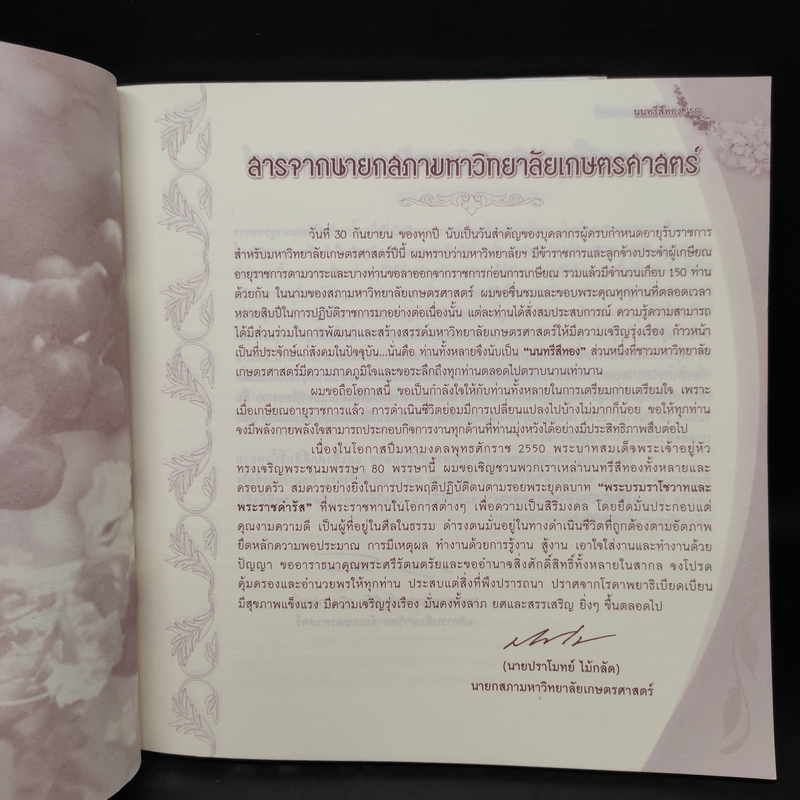 นนทรีสีทอง '50
สารจากนายกสภามหาวิทยาลัยเกษตรศาสตร์
วันที่ 30 กันยายน ของทุกปี นับเป็นวันสำคัญของบุคลากรผู้ครบกำหนดอายุรับราชการ
สำหรับมหาวิทยาลัยเกษตรศาสตร์ปีนี้ ผมทราบว่ามหาวิทยาลัยฯ มีข้าราชการและลูกจ้างประจำผู้เกษียณ
อายุราชการตามวาระและบางท่านขอลาออกจากราชการก่อนการเกษียณ รวมแล้วมีจำนวนเกือบ 150 ท่าน
ด้วยกัน ในนามของสภามหาวิทยาลัยเกษตรศาสตร์ ผมขอชื่นชมและขอบพระคุณทุกท่านที่ตลอดเวลา
หลายสิบปีในการปฏิบัติราชการมาอย่างต่อเนื่องนั้น แต่ละท่านได้สั่งสมประสบการณ์ ความรู้ความสามารถ
ได้มีส่วนร่วมในการพัฒนาและสร้างสรรค์มหาวิทยาลัยเกษตรศาสตร์ให้มีความเจริญรุ่งเรือง ก้าวหน้า
เป็นที่ประจักษ์แก่สังคมในปัจจุบัน...นั่นคือ ท่านทั้งหลายจึงนับเป็น "นนทรีสีทอง" ส่วนหนึ่งที่ชาวมหาวิทยาลัย
เกษตรศาสตร์มีความภาคภูมิใจและขอระลึกถึงทุกท่านตลอดไปตราบนานเท่านาน
ผมขอถือโอกาสนี้ ขอเป็นกำลังใจให้กับท่านทั้งหลายในการเตรียมกายเตรียมใจ เพราะ
เมื่อเกษียณอายุราชการแล้ว การดำเนินชีวิตย่อมมีการเปลี่ยนแปลงไปบ้างไม่มากก็น้อย ขอให้ทุกท่าน
จงมีพลังกายพลังใจสามารถประกอบกิจการงานทุกด้านที่ท่านมุ่งหวังได้อย่างมีประสิทธิภาพสืบต่อไป
เนื่องในโอกาสปีมหามงคลพุทธศักราช 2550 พระบาทสมเด็จพระเจ้าอยู่หัว
ทรงเจริญพระชนมพรรษา 80 พรรษานี้ ผมขอเชิญชวนพวกเราเหล่านนทรีสีทองทั้งหลายและ
ครอบครัว สมควรอย่างยิ่งในการประพฤติปฏิบัติตนตามรอยพระยุคลบาท "พระบรมราโชวาทและ
พระราชดำรัส" ที่พระราชทานในโอกาสต่างๆ เพื่อความเป็นสิริมงคล โดยยึดมั่นประกอบแต่
คุณงามความดี เป็นผู้ที่อยู่ในศีลในธรรม ดำรงตนมั่นอยู่ในทางดำเนินชีวิตที่ถูกต้องตามอัตภาพ
ยึดหลักความพอประมาณ การมีเหตุผล ทำงานด้วยการรู้งาน สู้งาน เอาใจใส่งานและทำงานด้วย
ปัญญา ขออาราธนาคุณพระศรีรัตนตรัยและขออำนาจสิ่งศักดิ์สิทธิ์ทั้งหลายในสากล จงโปรด
คุ้มครองและอำนวยพรให้ทุกท่าน ประสบแต่สิ่งที่พึงปรารถนา ปราศจากโรคาพยาธิเบียดเบียน
มีสุขภาพแข็งแรง มีความเจริญรุ่งเรือง มั่นคงทั้งลาภ ยศและสรรเสริญ ยิ่งๆ ขึ้นตลอดไป
(นายปราโมทย์ ไม้กลัด)
นายกสภามหาวิทยาลัยเกษตรศาสตร์